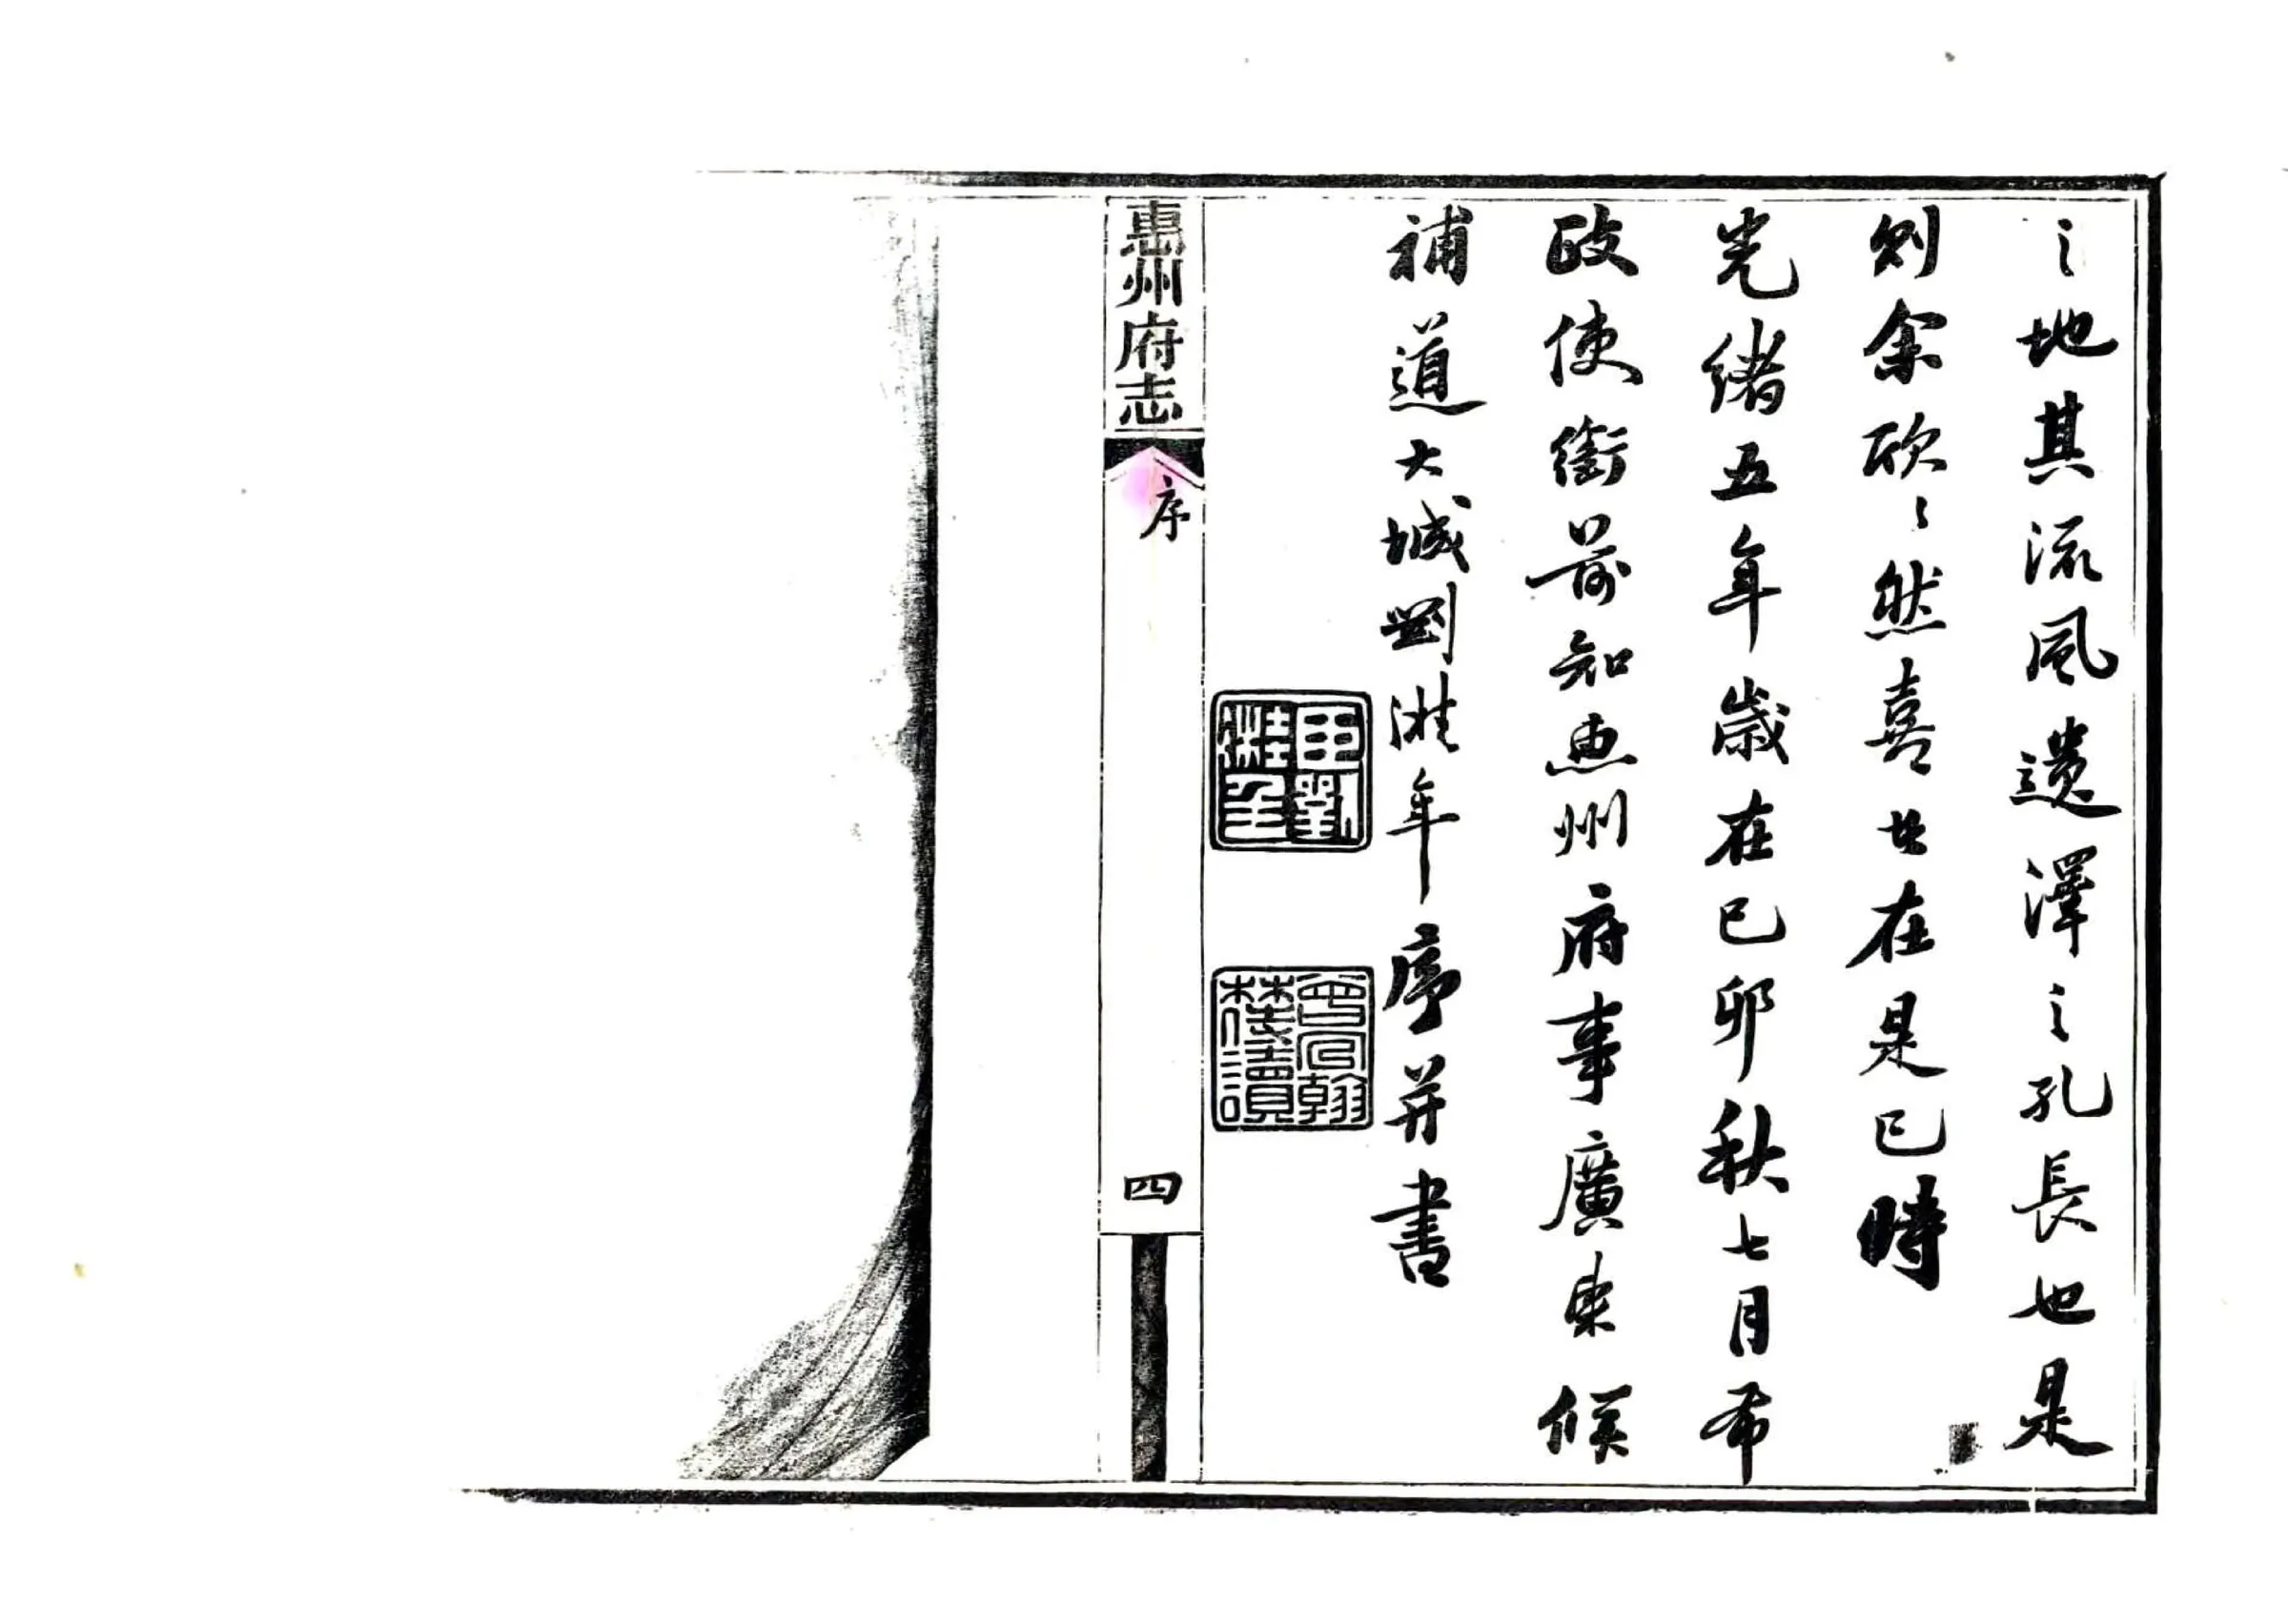 之地其流風遺澤之孔長也是
則余欣〻然喜在是已時
光緒五年歲在己卯秋七月布
政使銜前知惠州府事廣東候
補道大城劉溎年序并書
臣劉溎年
惠州府志
序
四